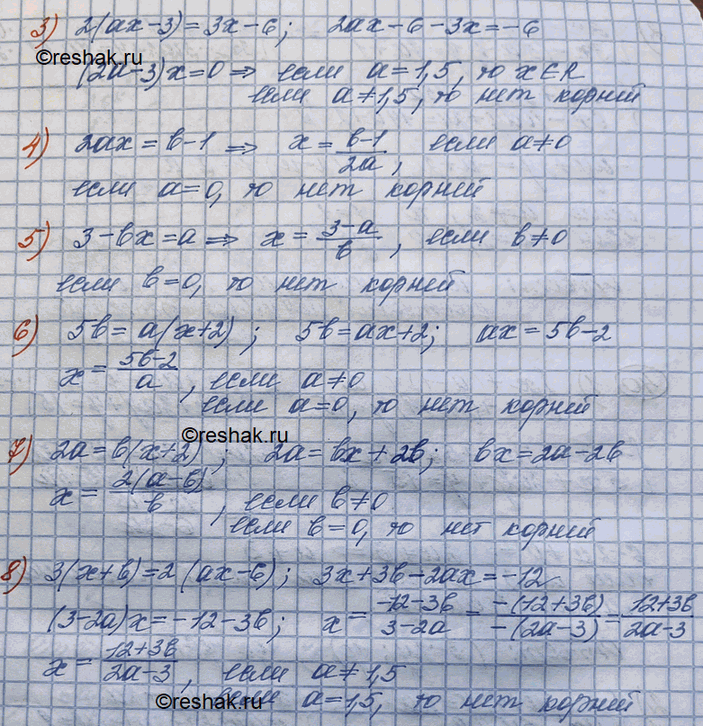 3) 2(ax-3)=3x-6; 2ax-6-3x=-6
©reshak.ru
(2a-3)x=0 ⇒ если a=1,5, то x∈R
если a≠1,5, то нет корней
4) 2ax=b-1 ⇒ x=(b-1)/(2a), если a≠0
если a=0, то нет корней
5) 3-bx=a ⇒ x=(3-a)/b, если b≠0
если b=0, то нет корней
6) 5b=a(x+2); 5b=ax+2; ax=5b-2
x=(5b-2)/a, если a≠0
если a=0, то нет корней
©reshak.ru
7) 2a=b(x+2); 2a=bx+2b; bx=2a-2b
x=2(a-b)/b, если b≠0
если b=0, то нет корней
8) 3(x+b)=2(ax-6); 3x+3b-2ax=-12
(3-2a)x=-12-3b; x=(-12-3b)/(3-2a)=-(12+3b)/-(2a-3)=(12+3b)/(2a-3)
x=(12+3b)/(2a-3), если a≠1,5
если a=1,5, то нет корней
©reshak.ru